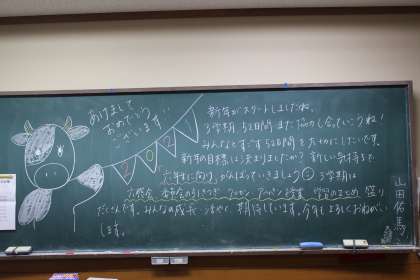 あけまして
おめでとう
ございます!!
2 0 2
新年がスタートしましたね。
3学期 52日間 また 協力し合っていこうね!
みんなとすごす52日間を大切にしたいです。
新年の目標は決まりましたか? 新しい気持ちで
六年生に向け、がんばっていきましょう 3学期は
六送会、委員会の引きつぎ、クッキン、授業、学習のまとめ 盛り
だくさんです。みんなの成長 期待しています。今年もよろしくおねがい
します。
山田佑馬